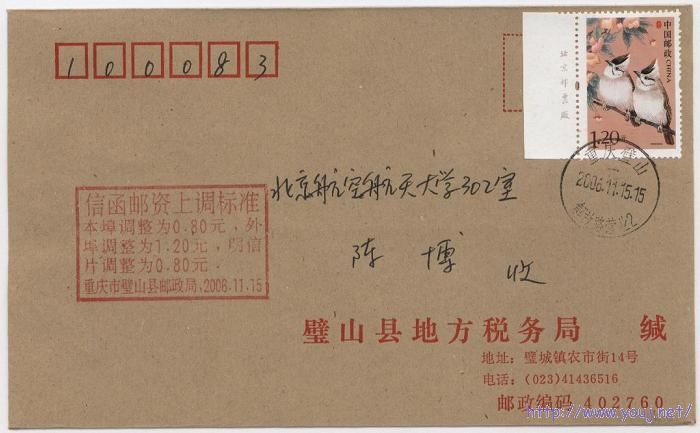 100083
北京邮票厂
中国邮政
CHINA
1.20
重庆璧山
2006.11.15.15
北京航空航天大学302室
陈博 收
信函邮资上调标准
本埠调整为0.80元,外
埠调整为1.20元,明信
片调整为0.80元.
重庆市璧山县邮政局,2006.11.15
璧山县地方税务局 缄
地址: 璧城镇农市街14号
电话: (023)41436516
邮政编码 402760
http://www.youj.net/